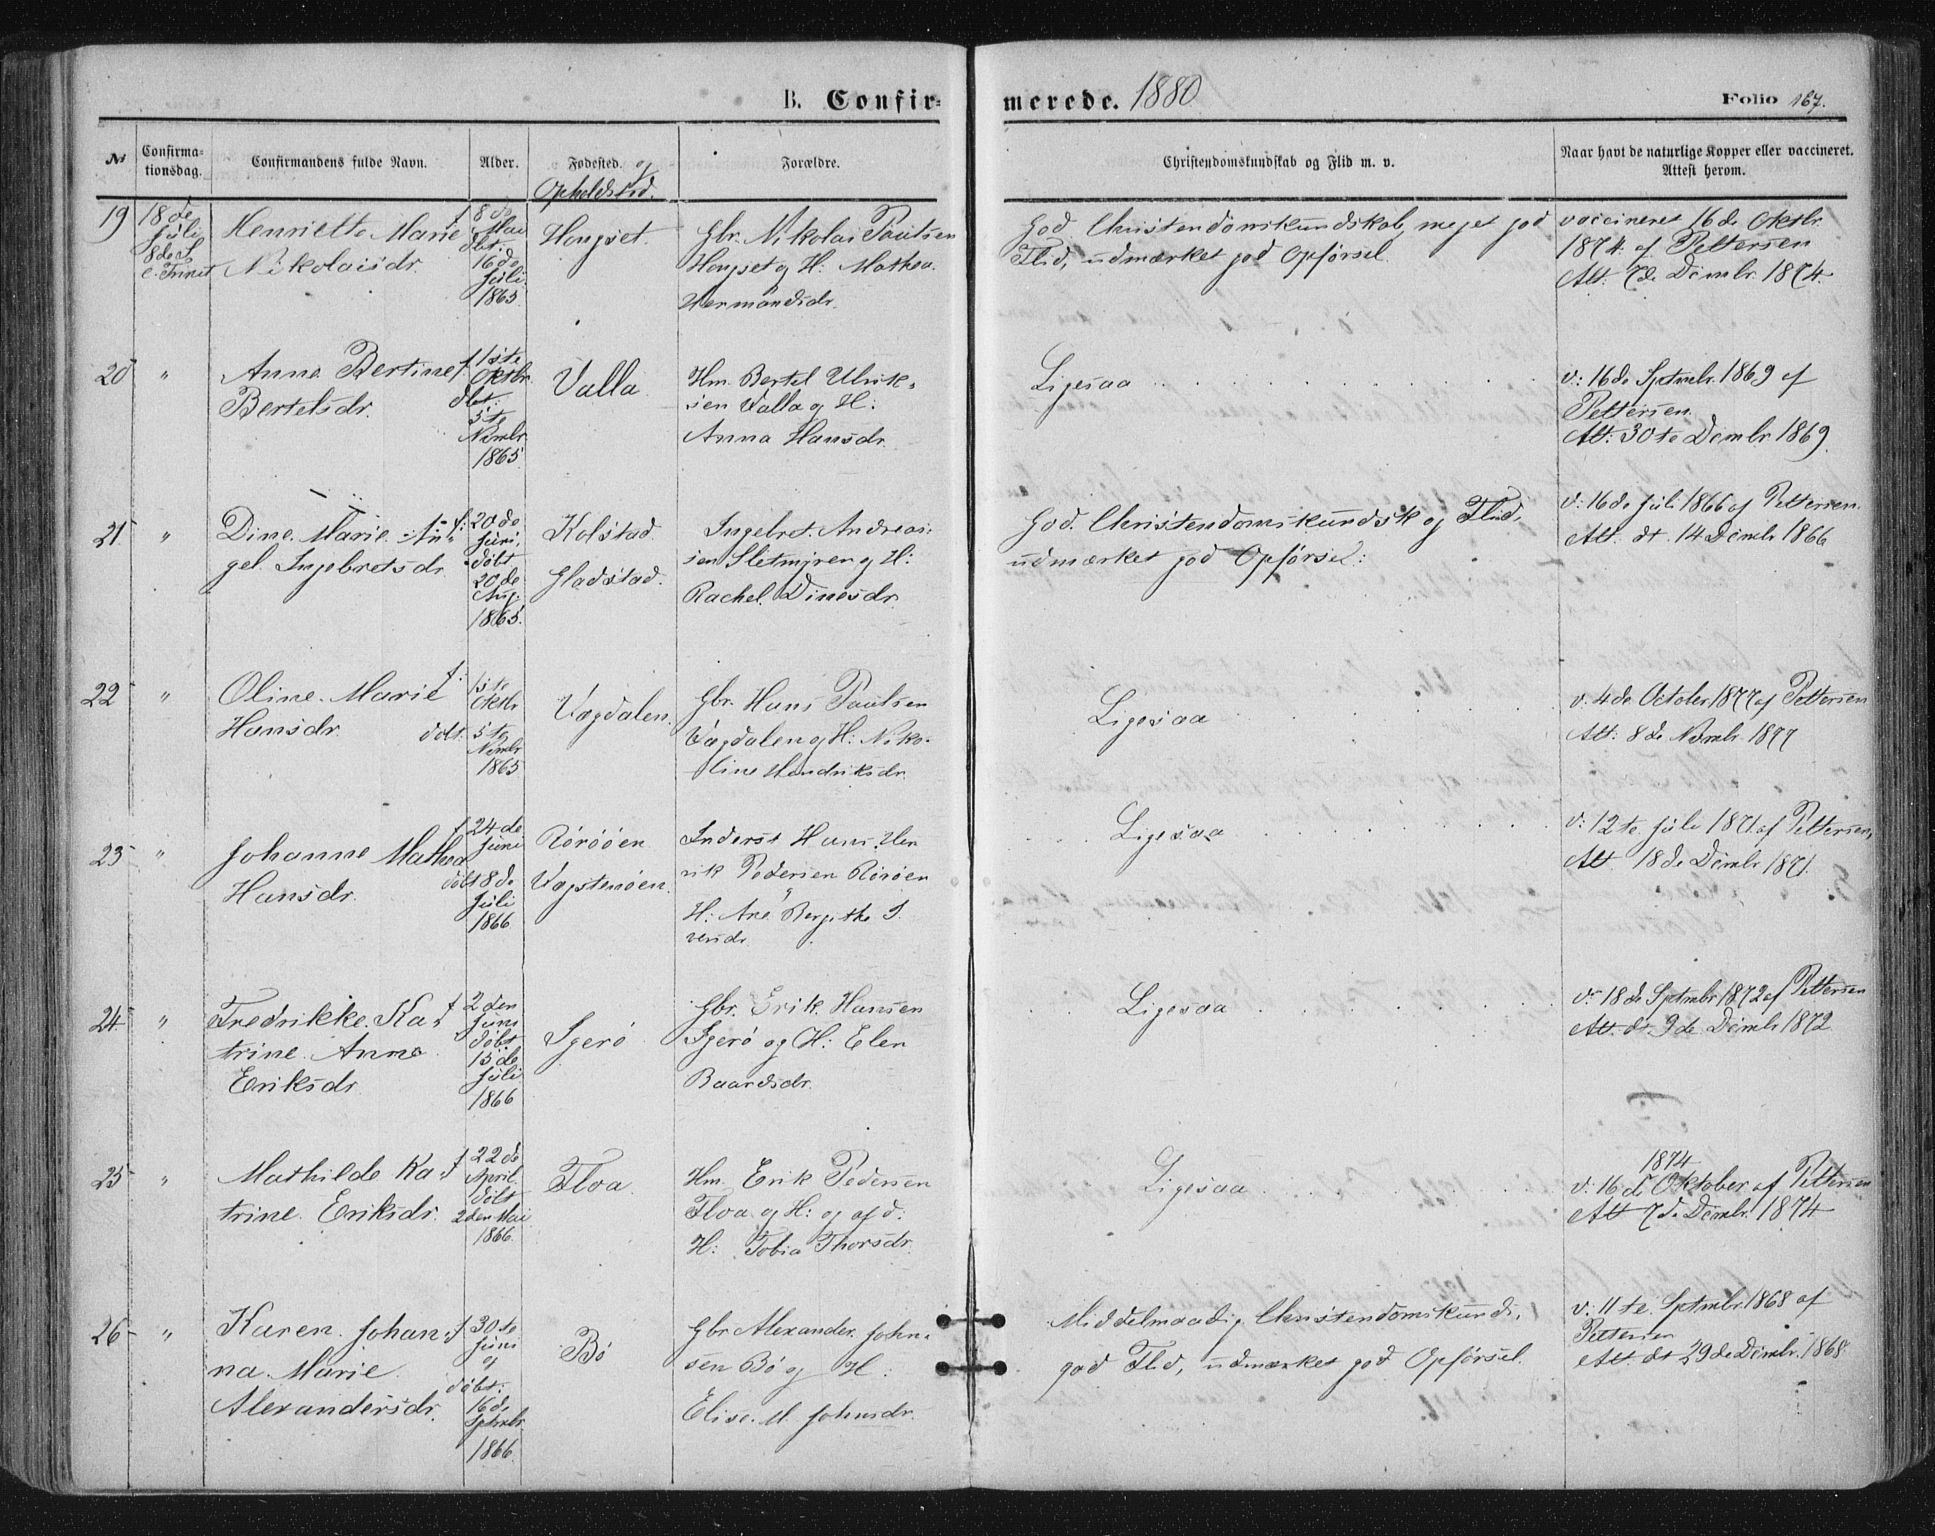 B. Confir-
merede. 1880
Folio 167.
No
Confirma-
tionsdag.
Confirmandens fulde Navn.
Alder.
Fødested. og
Opholdssted.
Forældre.
Christendomskundskab og Flid m. v.
Naar havt de naturlige Kopper eller vaccineret.
Attest herom.
19
18de
Juli
8de S.
e. Trinit
Henriette Marie
Nikolaisdr.
f 8de
Mai
døbt.
16de
Juli
1865
Hongset.
Gbr. Nikolai Paulsen
Hongset og H: Mathea
Hermandsdr.
God Christendomskundskab, meget god
Flid, udmærket god Opførsel.
vaccineret 16de Oktbr.
1874 af Pettersen
Att: 7de Dcmbr. 1874.
20
"
Anna Bertine
Bertelsdr.
f. 1ste
Oktbr.
døbt:
5te
Nvmbr
1865
Valla
Hm. Bertel Ulrik-
sen Valla og H:
Anna Hansdr.
Ligesaa
v: 16de Sptmbr. 1869 af
Pettersen.
Att: 30te Dcmbr 1869.
21
"
Dine Marie An-
gel Ingebretsdr
f: 20de
Juni.
døbt
20de
Aug.
1865.
Kolstad.
Gladstad.
Ingebret Andreas-
sen Sletmyren og H:
Rachel Dinesdr.
God Christendomskundsk og Flid,
udmærket god Opførsel:
v: 16de Juli 1866 af Pettersen.
Att. dt. 14 Dcmbr 1866
22
"
Oline Marie
Hansdr.
f.
1ste
Oktbr
døbt. 5te
Nvmbr
1865
Vaagdalen.
Gbr. Hans Paulsen
Vaagdalen og H: Niko-
line Hendriksdr.
Ligesaa
v: 4de October 1877 af Pettersen
Att: 8de Nvmbr. 1877
23
"
Johanne Mathea
Hansdr.
f 24de
Juni
døbt 8de
Juli
1866
Rørøen
Hans Hen
rik Pedersen Rørøen
H: Ane Bergithe I
versdr.
Ligesaa
v: 12te Juli 1871 af Pettersen,
Att 18de Dcmbr 1871.
24
"
Fredrikke Ka-
trine Anna
Eriksdr.
f 2den
Juni
døbt
15de
Juli
1866
Igerø
Gbr. Erik Hansen
Igerø og H: Elen
Baardsdr.
Ligesaa
v: 18de Sptmbr 1872 af Pettersen
Att. dt. 9de Dcmbr 1872
25
"
Mathilde Ka-
trine Eriksdr.
f 22de
April.
døbt
2den Mai
1866.
Floa
Hm. Erik Pedersen
Floa og H: og afd:
H: Tobia Thorsdr.
Ligesaa
1874
v: 16de Oktober af Pettersen
Att 7de Dcmbr. 1874
26
"
Karen Johan-
na Marie
Alexandersdr.
f 30te
Juni
og
døbt:
16de
Sptmbr
1866
Bø
Gbr Alexander John-
sen Bø og H:
Elise M Johnsdr.
Middelmaadig Christendomskunds.
god Flid, udmærket god Opførsel.
v: 11te Sptmbr. 1868 af
Pettersen
Att. dt 29de Dcmbr. 1868